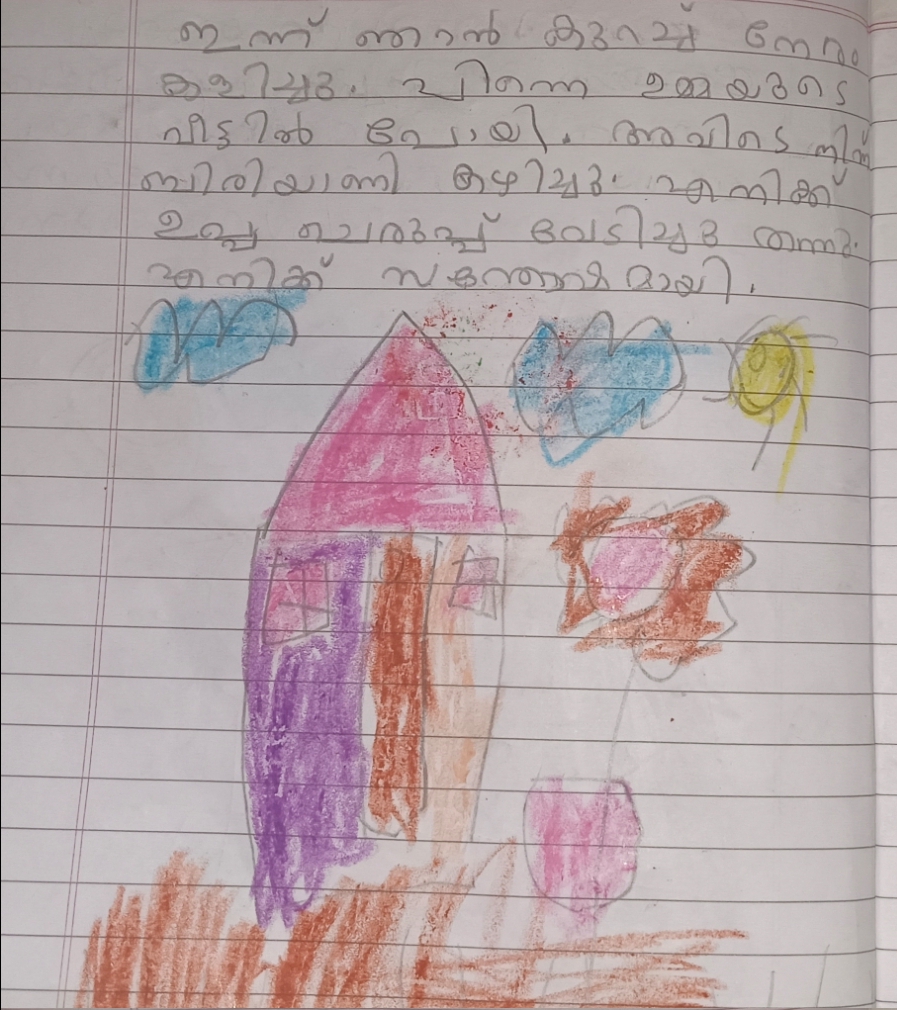 ഇന്ന് ഞാൻ കുറച്ച് നേരം
കളിച്ചു. പിന്നെ ഉമ്മയുടെ
വീട്ടിൽ പോയി. അവിടെ നിന്ന്
ബിരിയാണി കഴിച്ചു. എനിക്ക്
ഉപ്പ ചെരുപ്പ് വേടിച്ചു തന്നു.
എനിക്ക് സന്തോഷമായി.